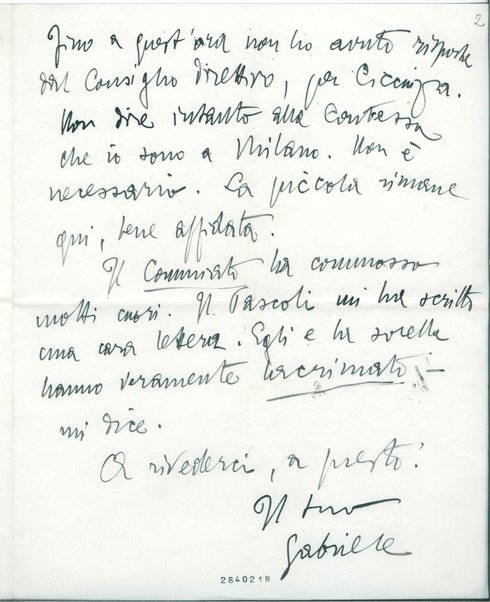 2
Fino a quest'ora non ho avuto risposta
dal Consiglio direttivo, per Cicciuzza.
Non dire intanto alla Contessa
che io sono a Milano. Non è
necessario. La piccola rimane
qui, bene affidata.
Il Commiato ha commosso
molti cuori. Il Pascoli mi ha scritto
una cara lettera. Egli e la sorella
hanno veramente lacrimato –
mi dice.
A rivederci, a presto!
Il tuo
Gabriele
2840218